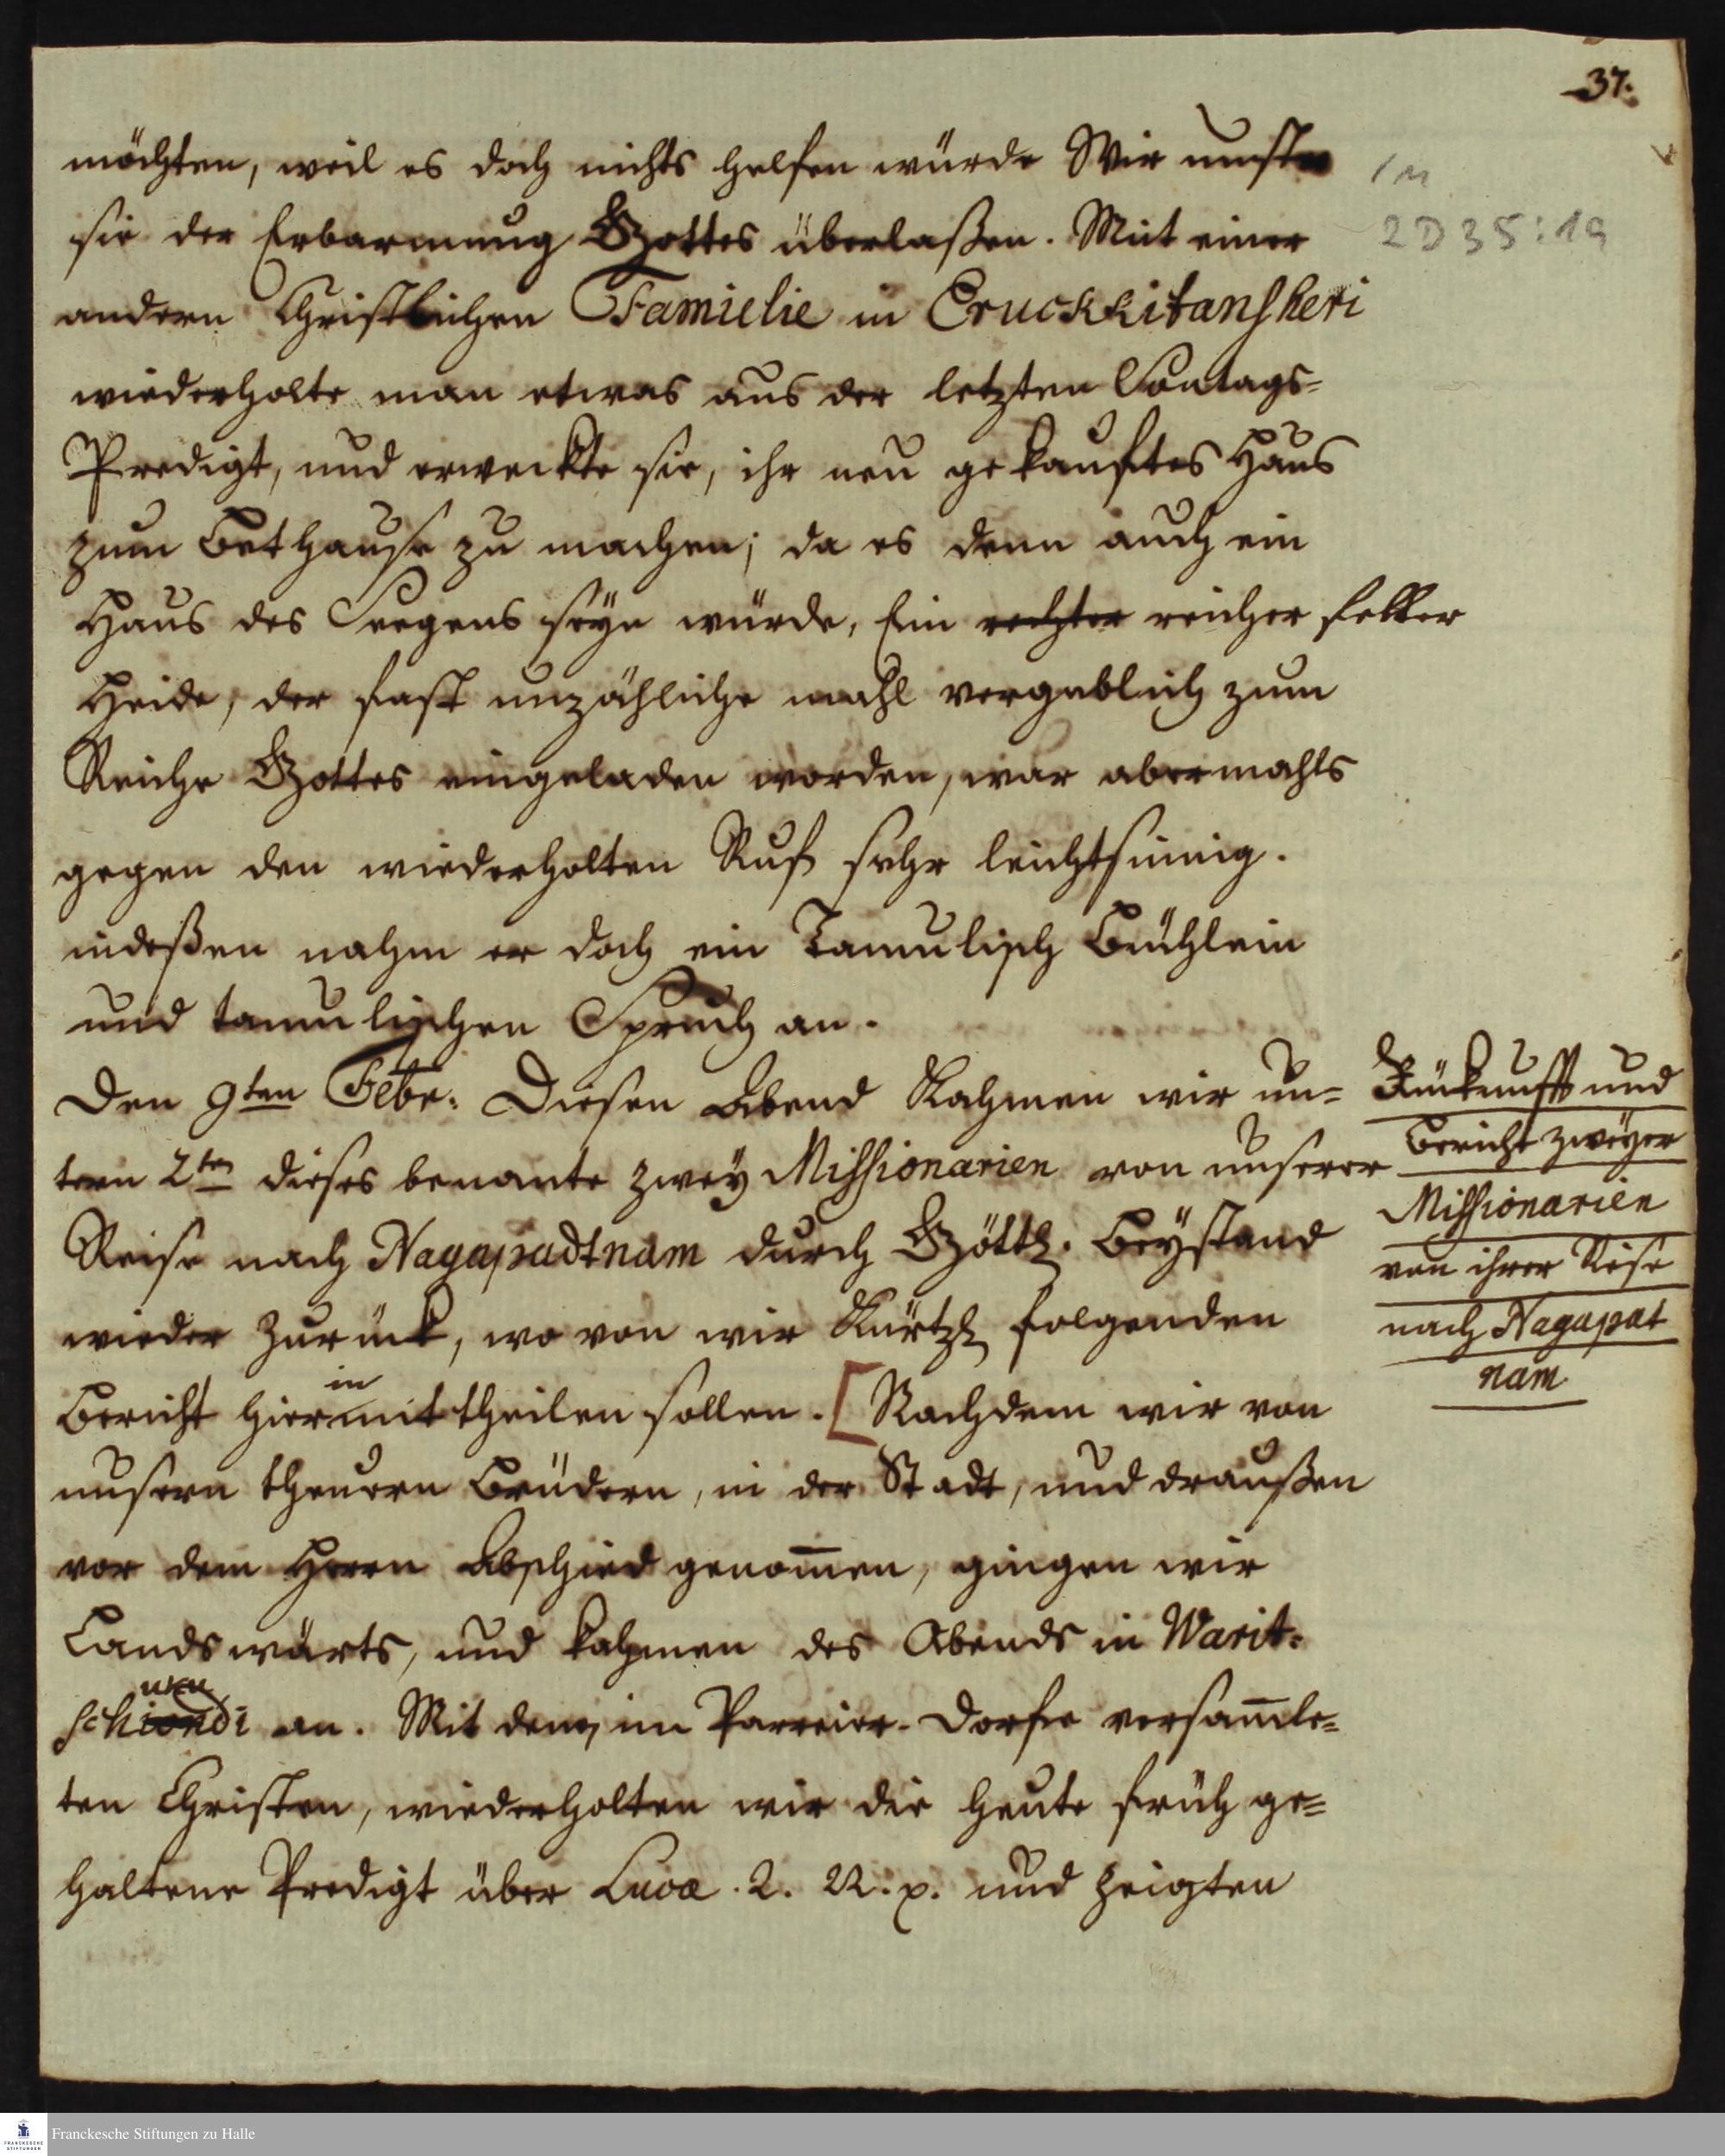 37.
möchten, weil es doch nichts helfen würde Wir musten
1 M
2 D 35 : 19
sie der Erbarmung Gottes überlaßen. Mit einer
andern Christlichen Familie in Cruckkitansheri
wiederholte man etwas aus der letzten Sontags-
Predigt, und erweckte sie, ihr neu gekauftes Haus
zum Bethause zu machen; da es denn auch ein
Haus des Seegens seyn würde, Ein rechter reicher
Heide, der fast unzähliche mahl vergeblich zum
Reiche Gottes eingeladen worden, war abermahls
gegen den wiederholten Ruf sehr leichtsinnig.
indeßen nahm er doch ein Tamulisch Büchlein
und tamulischen Spruch an.
Den 9ten Febr: Diesen Abend Kahmen wir un-
tern 2ten dieses benante zwey Missionarien von unserer
Reise nach Nagapadtnam durch Göttl. Beystand
wieder zurück, wo von wir Kürtzl folgenden
in
Bericht hiermit theilen sollen. [Nachdem wir von
unsern theuren Brüdern, in der Stadt, und draußen
vor dem Herrn Abschied genom̅en, gingen wir
Landswärts, und kahmen des Abends in Warit-
schiondi an. Mit den, im Parreier-Dorfe versam̅le-
ten Christen, wiederholten wir die heute früh ge-
haltene Predigt über Lucæ. 2. 22. p. und zeigten
Rückunfft und
Bericht zweyer
Missionarien
von ihrer Reise
nach Nagapat
nam
Franckesche Stiftungen zu Halle
FRANCKESCHE
STIFTUNGEN